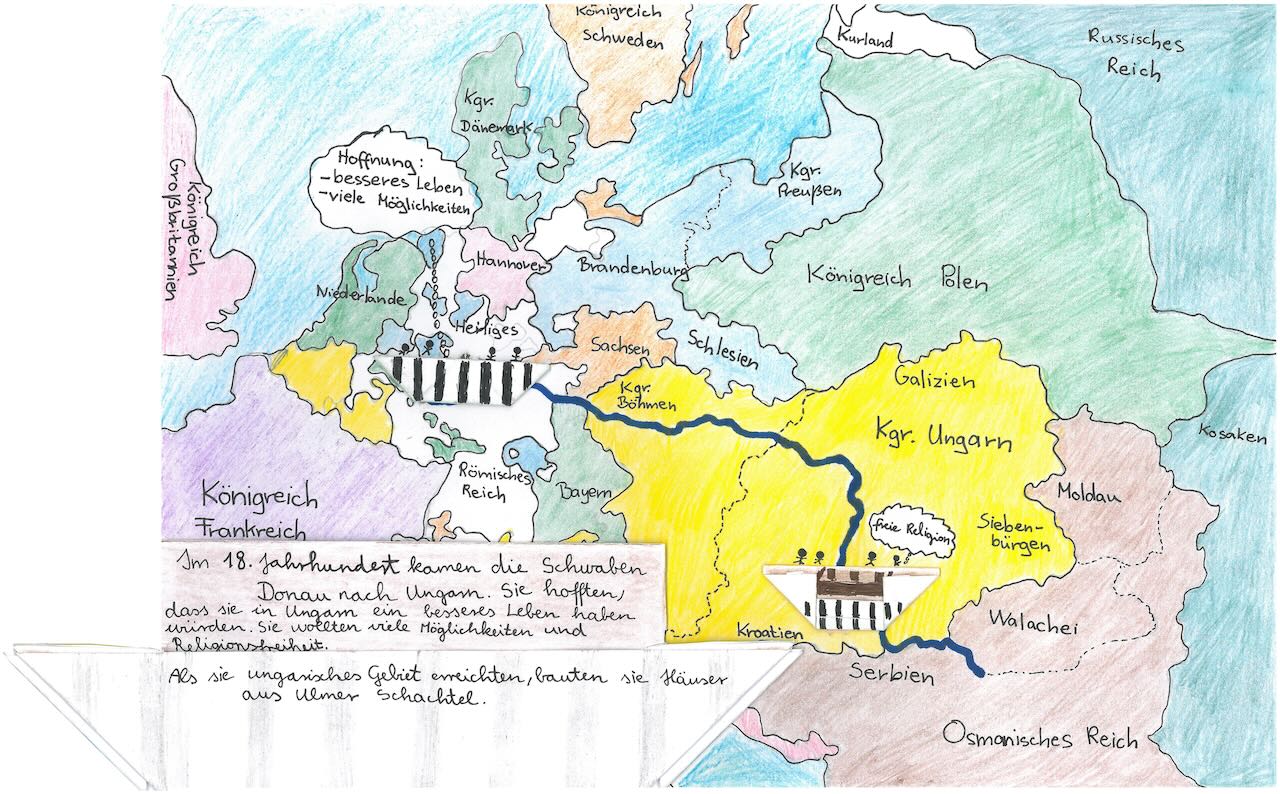 Königreich
Schweden
Kurland
Russisches
Reich
Kgr.
Dänemark
Hoffnung:
-besseres Leben
-viele Möglichkeiten
Kgr.
Preußen
Königreich
Großbritannien
Hannover
Brandenburg
Niederlande
Königreich Polen
Heiliges
Sachsen
Schlesien
Galizien
Kgr.
Böhmen
Kgr. Ungarn
Kosaken
Römisches
Reich
Bayern
Moldau
Königreich
Frankreich
freie Religion
Sieben-
bürgen
Im 18. Jahrhundert kamen die Schwaben
Donau nach Ungarn. Sie hofften,
dass sie in Ungarn ein besseres Leben haben
würden. Sie wollten viele Möglichkeiten und
Religionsfreiheit.
Kroatien
Walachei
Serbien
Als sie ungarisches Gebiet erreichten, bauten sie Häuser
aus Ulmer Schachtel.
Osmanisches Reich